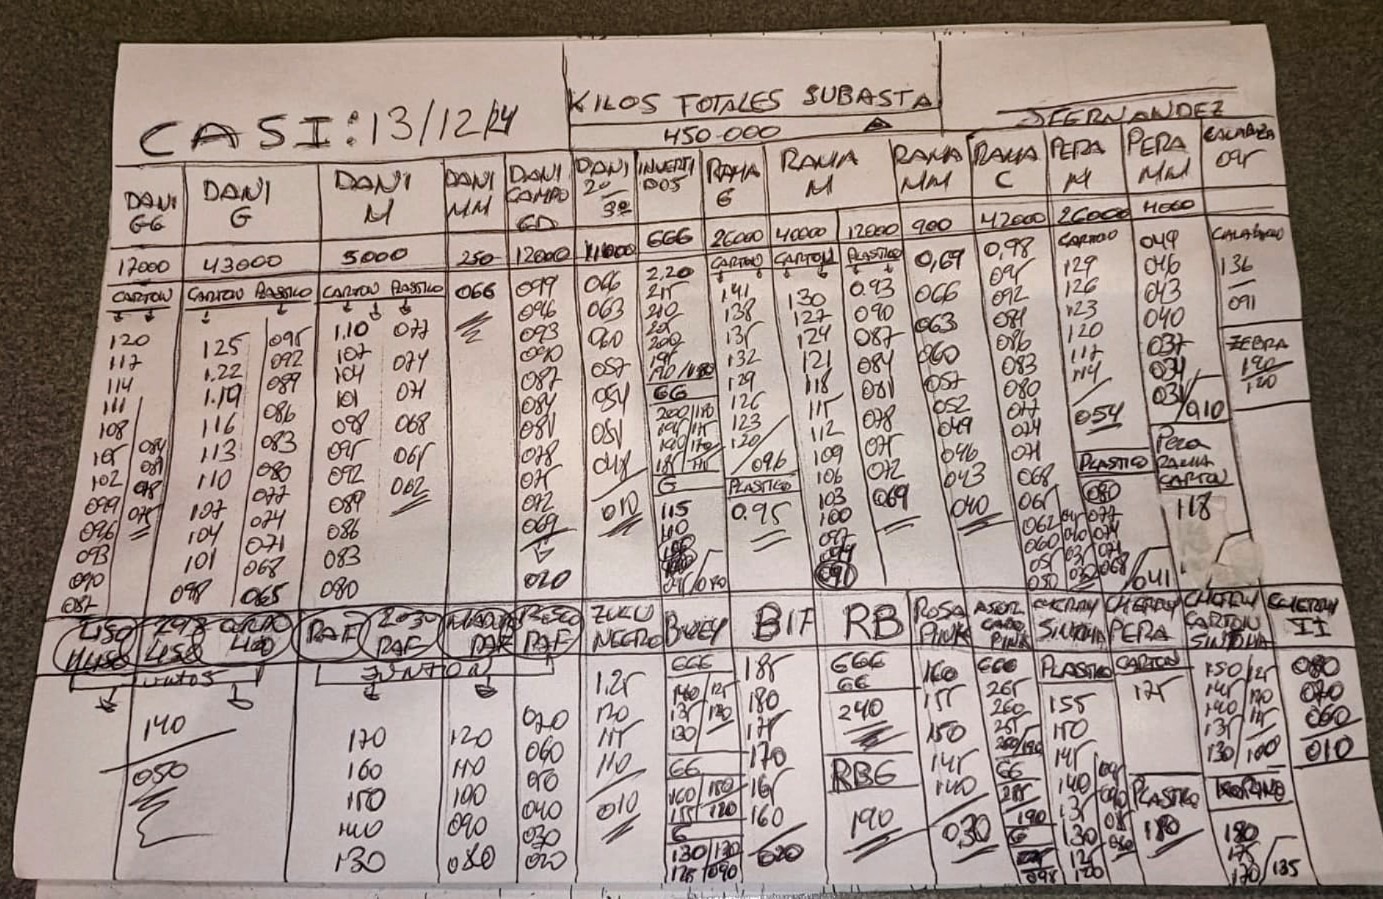 CASI: 13/12/24
KILOS TOTALES SUBASTA
450.000
JFERNANDEZ
DANI GG
DANI G
DANI M
DANI MM
DANI CAMPO GD
DANI 2º 3º
INVERTI DOS
RAMA G
RAMA M
RAMA MM
RAMA C
PERA M
PERA MM
CALABAZA 095
17000
43000
5000
250
12000
11000
GGG
26000
40000
12000
900
42000
26000
4000
CARTON
CARTON PLASTICO
CARTON PLASTICO
066
CARTON
CARTON
PLASTICO
CARTON
120
117
114
111
108
105
102
099
096
093
090
087
084
081
078
075
125
1.22
1.19
116
113
110
107
104
101
098
095
092
089
086
083
080
077
074
071
068
065
1.10
107
104
101
098
095
092
089
086
083
080
077
074
071
068
065
062
099
096
093
090
087
084
081
078
075
072
069
020
066
063
060
057
054
051
048
010
2,20
215
210
205
200
195
190/180
GG
200/180
195/175
190/170
G
115
110
141
138
135
132
129
126
123
120/096
PLASTICO
0.95
130
127
124
121
118
115
112
109
106
103
100
097
094
091
0.93
090
087
084
081
078
075
072
069
0,69
066
063
060
057
052
049
046
043
040
0,98
095
092
089
086
083
080
077
074
071
068
065
062
060
129
126
123
120
117
114
054
PLASTICO
080
077
074
071
068
049
046
043
040
037
034
031/010
Pera RAMA CARTON
118
041
136
091
ZEBRA
190
120
RAF
2030 RAF
RAF
ZULU NEGRO
BWEY
BIF
RB
ROSA PINK
PINK
CHERRY SINTOMA
CHERRY PERA
CHERRY CARTON SINTOMA
CHERRY II
JUNTOS
JUNTOS
140
050
170
160
150
140
130
120
110
100
090
080
070
060
050
040
030
020
1.25
120
115
110
010
GGG
140/125
135/120
130
GG
160/150
155/120
G
130/120
125/090
185
180
175
170
165
160
020
GGG
GG
240
RBG
190
160
155
150
145
140
030
GGG
265
260
255
250/190
GG
215
190
G
PLASTICO
155
150
145
140
135
130
125
120
CARTON
125
PLASTICO
180
150/125
145/120
140/115
135
130/100
180
175
170/135
080
070
060
010